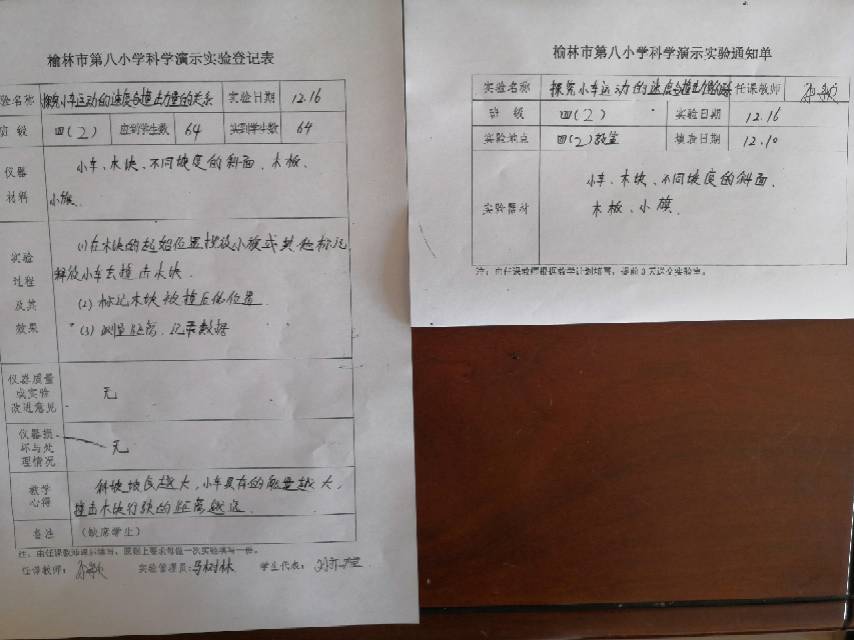 榆林市第八小学科学演示实验登记表
验名称 探究小车运动的速度与撞击力量的关系 实验日期 12.16
班 级 四(2) 应到学生数 64 实到学生数 64
仪器材料 小车、木块、不同坡度的斜面、木板、
小旗.
实验过程及其效果 (1)在木块的起始位置摆放小旗或其他标记,
释放小车去撞击木块.
(2)标记木块被撞后的位置.
(3)测量距离、记录数据
仪器质量或实验改进意见 无
仪器损坏与处理情况 无
教学心得 斜坡坡度越大,小车具有的能量越大,
撞击木块行驶的距离越远.
备注 (缺席学生)
注:由任课教师演示填写,原则上要求每做一次实验填写一份。
任课教师: 实验管理员:马树林 学生代表:
榆林市第八小学科学演示实验通知单
实验名称 探究小车运动的速度与撞击力量的 任课教师
班 级 四(2) 实验日期 12.16
实验地点 四(2)教室 填验日期 12.10
实验器材 小车、木块、不同坡度的斜面、
木板、小旗.
注:由任课教师根据教学计划填写,提前3天送交实验室。